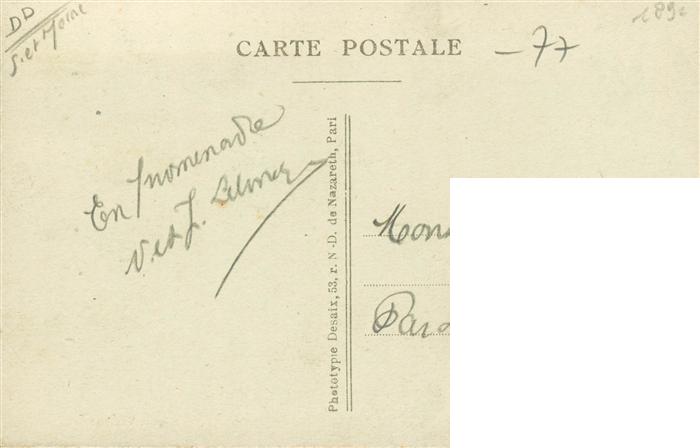 DD
S. et Marne
CARTE POSTALE
-77
189
En promenade
V et J.
Phototypie Desaix, 53, r. N.-D. de Nazareth, Pari
Mons
Par